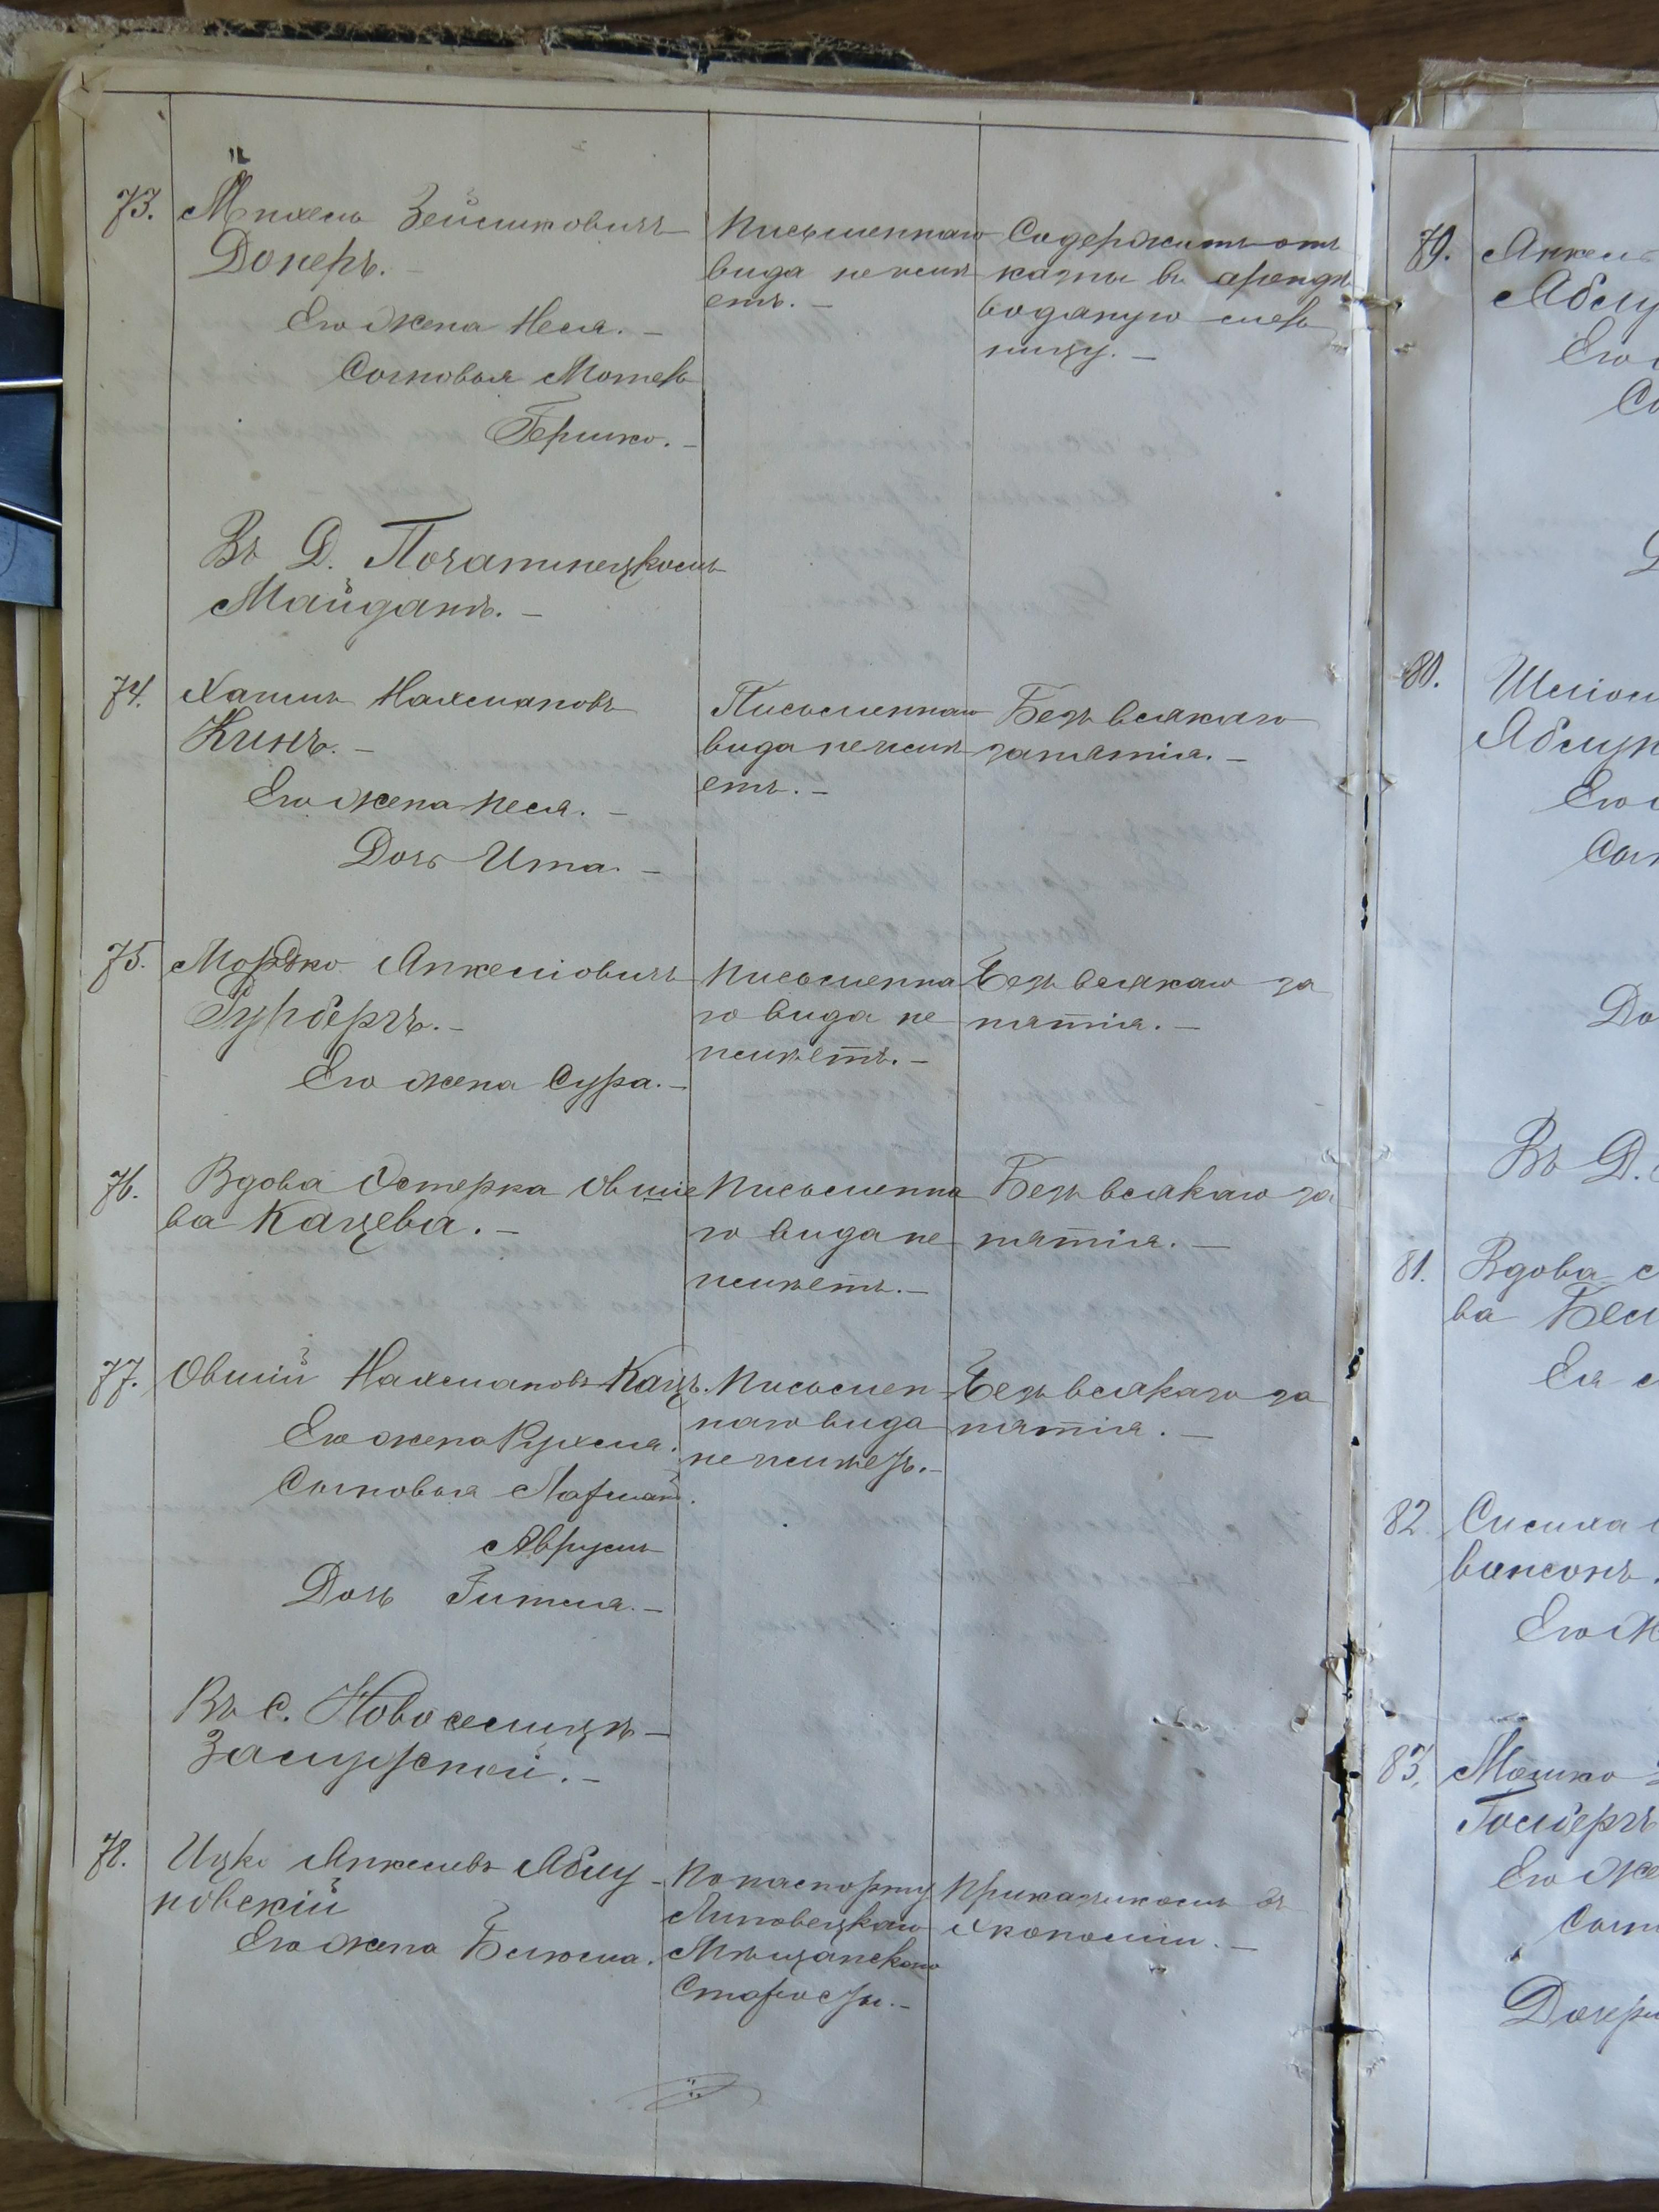 73. Михель Зейликовичъ
Донеръ. –
Его жена Неся. –
Сыновья Мотель
Гершко. –
Письменнаго
вида не имѣ
етъ. –
Содержитъ отъ
казны въ арендѣ
водяную мель
ницу. –
Въ Д. Почапинецкомъ
Майданѣ. –
74. Хаимъ Нахмановъ
Кинъ. –
Его жена Песя. –
Дочь Ита. –
Письменнаго
вида не имѣ
етъ. –
Безъ всякаго
занятія. –
75. Мордко Анкеліовичъ
Гурбергъ. –
Его жена Сура. –
Письменна
го вида не
имѣетъ. –
Безъ всякаго за
нятія. –
76. Вдова Остерка Овшіе
ва Кацева. –
Письменна
го вида не
имѣетъ. –
Безъ всякаго за
нятія. –
77. Овшій Нахмановъ Кацъ.
Его жена Рухля.
Сыновья
Аврумъ
Дочь Гитля. –
Письмен
наго вида
не имѣетъ. –
Безъ всякаго за
нятія. –
Въ с. Новоселицѣ –
78. Ицко Анкелевъ Аблу
новскій
Его жена Блюма.
По паспорту
Липовецкаго
Мѣщанскаго
Старосты. –
Прикащикомъ въ
экономіи. –
79. Анкель
Аблу
Его
Сы
80. Шліом
Аблун
Его
Сын
До
Въ Д.
81. Вдова
ва
Ея
82. Сисиха
винсонъ.
Его ж
83. Мошко
Гольбергъ
Его же
Сын
Дочери